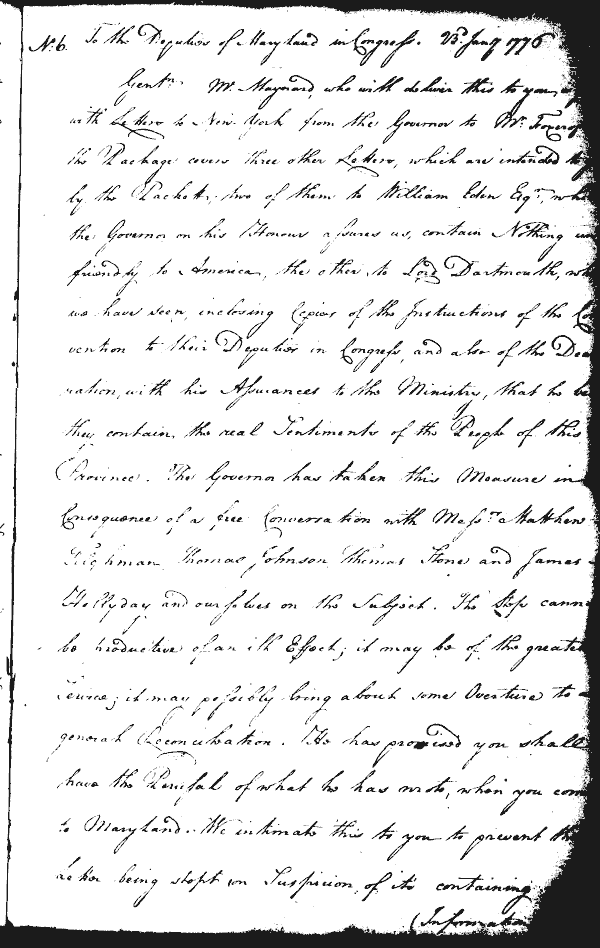 No. 6. To the Deputies of Maryland in Congress. 25 Jany 1776
Gentn. Mr. Maynard, who will deliver this to you,
with Letters to New York from the Governor to Mr.
the Package covers three other Letters, which are intended
by the Packett; two of them to William Eden Esqr.,
the Governor on his Honour assures us, contain Nothing
friendly to America, the other to Lord Dartmouth,
we have seen, inclosing Copies of the Instructions of the
vention to their Deputies in Congress, and also of the
ration, with his Assurances to the Ministry, that he
they contain, the real Sentiments of the People of this
Province. The Governor has taken this Measure in
Consequence of a free Conversation with Messrs. Matthew
Tilghman Thomas Johnson Thomas Stone and James
Hollyday and ourselves on the Subject. The Step
be productive of an ill Effect; it may be of the
Service; it may possibly bring about some Overture to
general Reconciliation. He has promised you shall
have the Perusal of what he has wrote, when you
to Maryland. We intimate this to you to prevent
Letter being stopt on Suspicion, of its containing